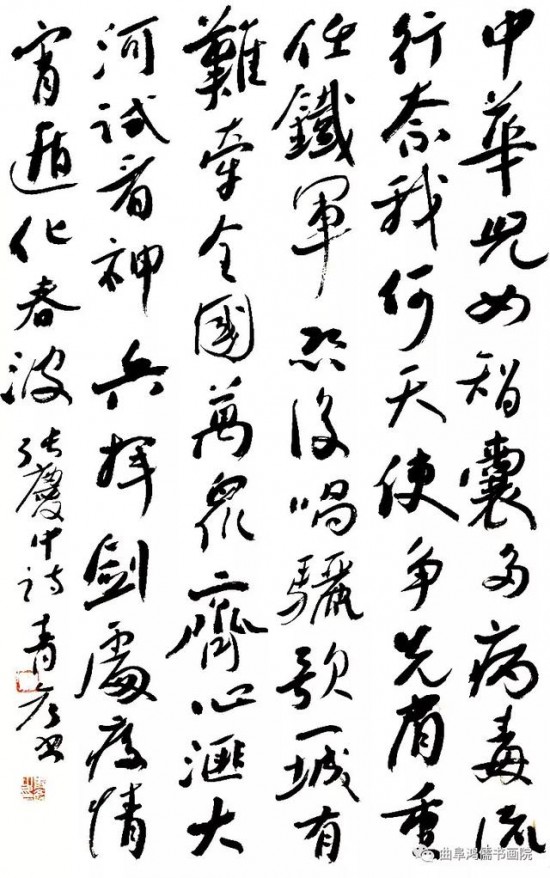 中華兒女智囊多病毒流
行奈我何天使争先肩重
任鐵軍恐後唱驪歌一城有
難牽全國萬衆齊心滙大
河试看神兵揮劍處疫情
宵遁化春波
张慶中诗 青
曲阜鸿儒书画院